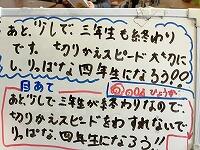 あと、少しで三年生も終わり
です。切りかえスピード大切に
し、りっぱな四年生になろう!!
目あて
ひょうが
あと少しで三年生が終わりなので、
切りかえスピードをわすれないで
りっぱな、四年生になろう!!